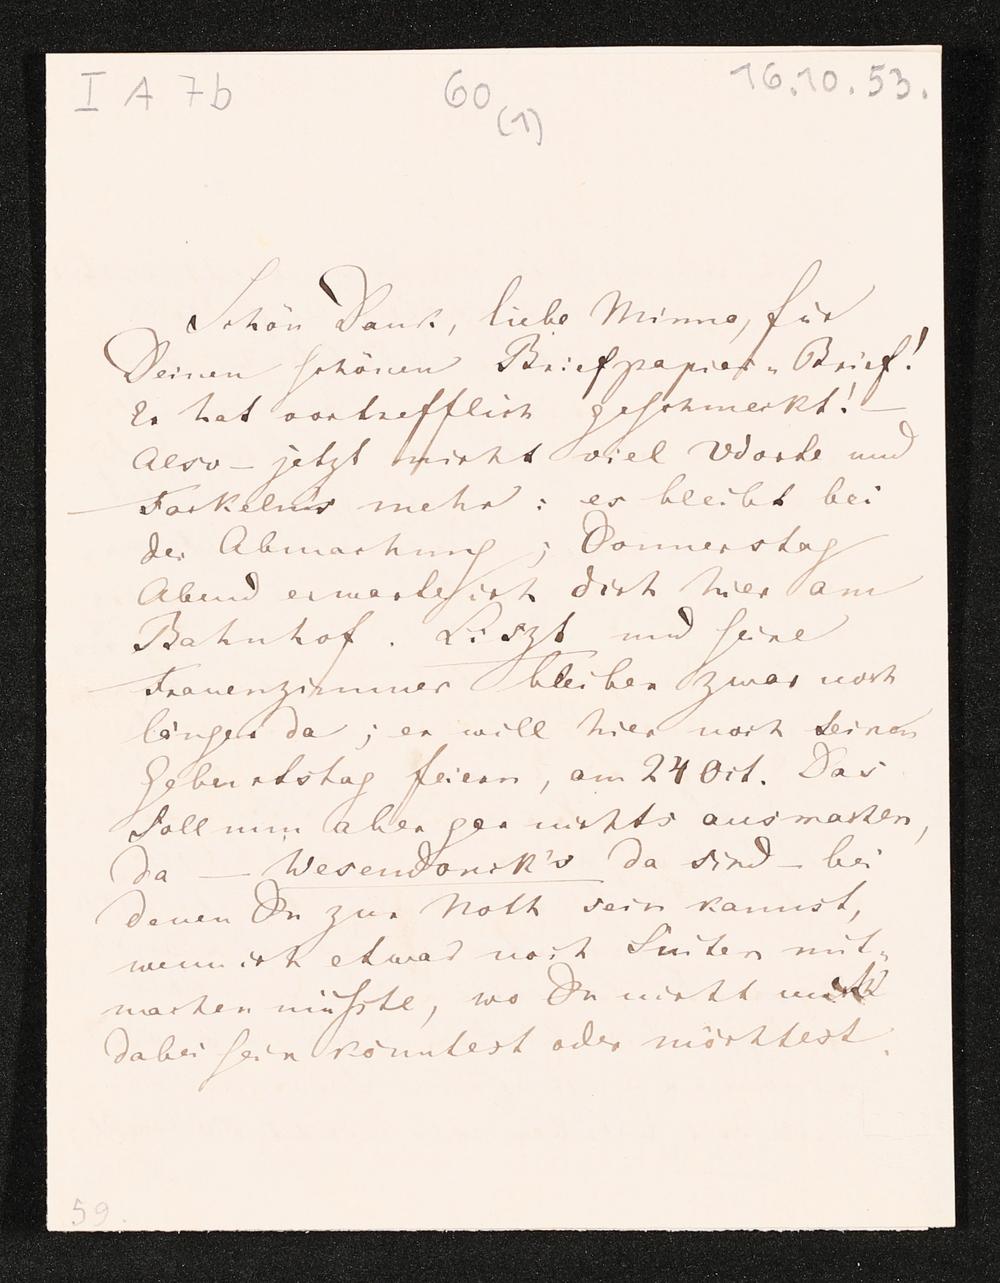 I A 7b 60 (1) 16.10.53.
Schön Dank, liebe Minna, für
Deinen schönen Briefpapier-Brief!
Er hat vortrefflich geschmeckt! —
Also — jetzt nicht viel Worte und
Fackelns mehr: es bleibt bei
der Abmachung; Donnerstag
Abend erwarte ich dich hier am
Bahnhof. Liszt und seine
Frauenzimmer bleiben zwar noch
länger da; er will hier noch seinen
Geburtstag feiern, am 24 Oct. Das
soll nun aber gar nichts ausmachen,
da — Wesendonck's da sind — bei
denen Du zur Noth sein kannst,
wenn ich etwas noch Suiten mit-
machen müsste, wo Du nicht
dabei sein könntest oder möchtest.
59.